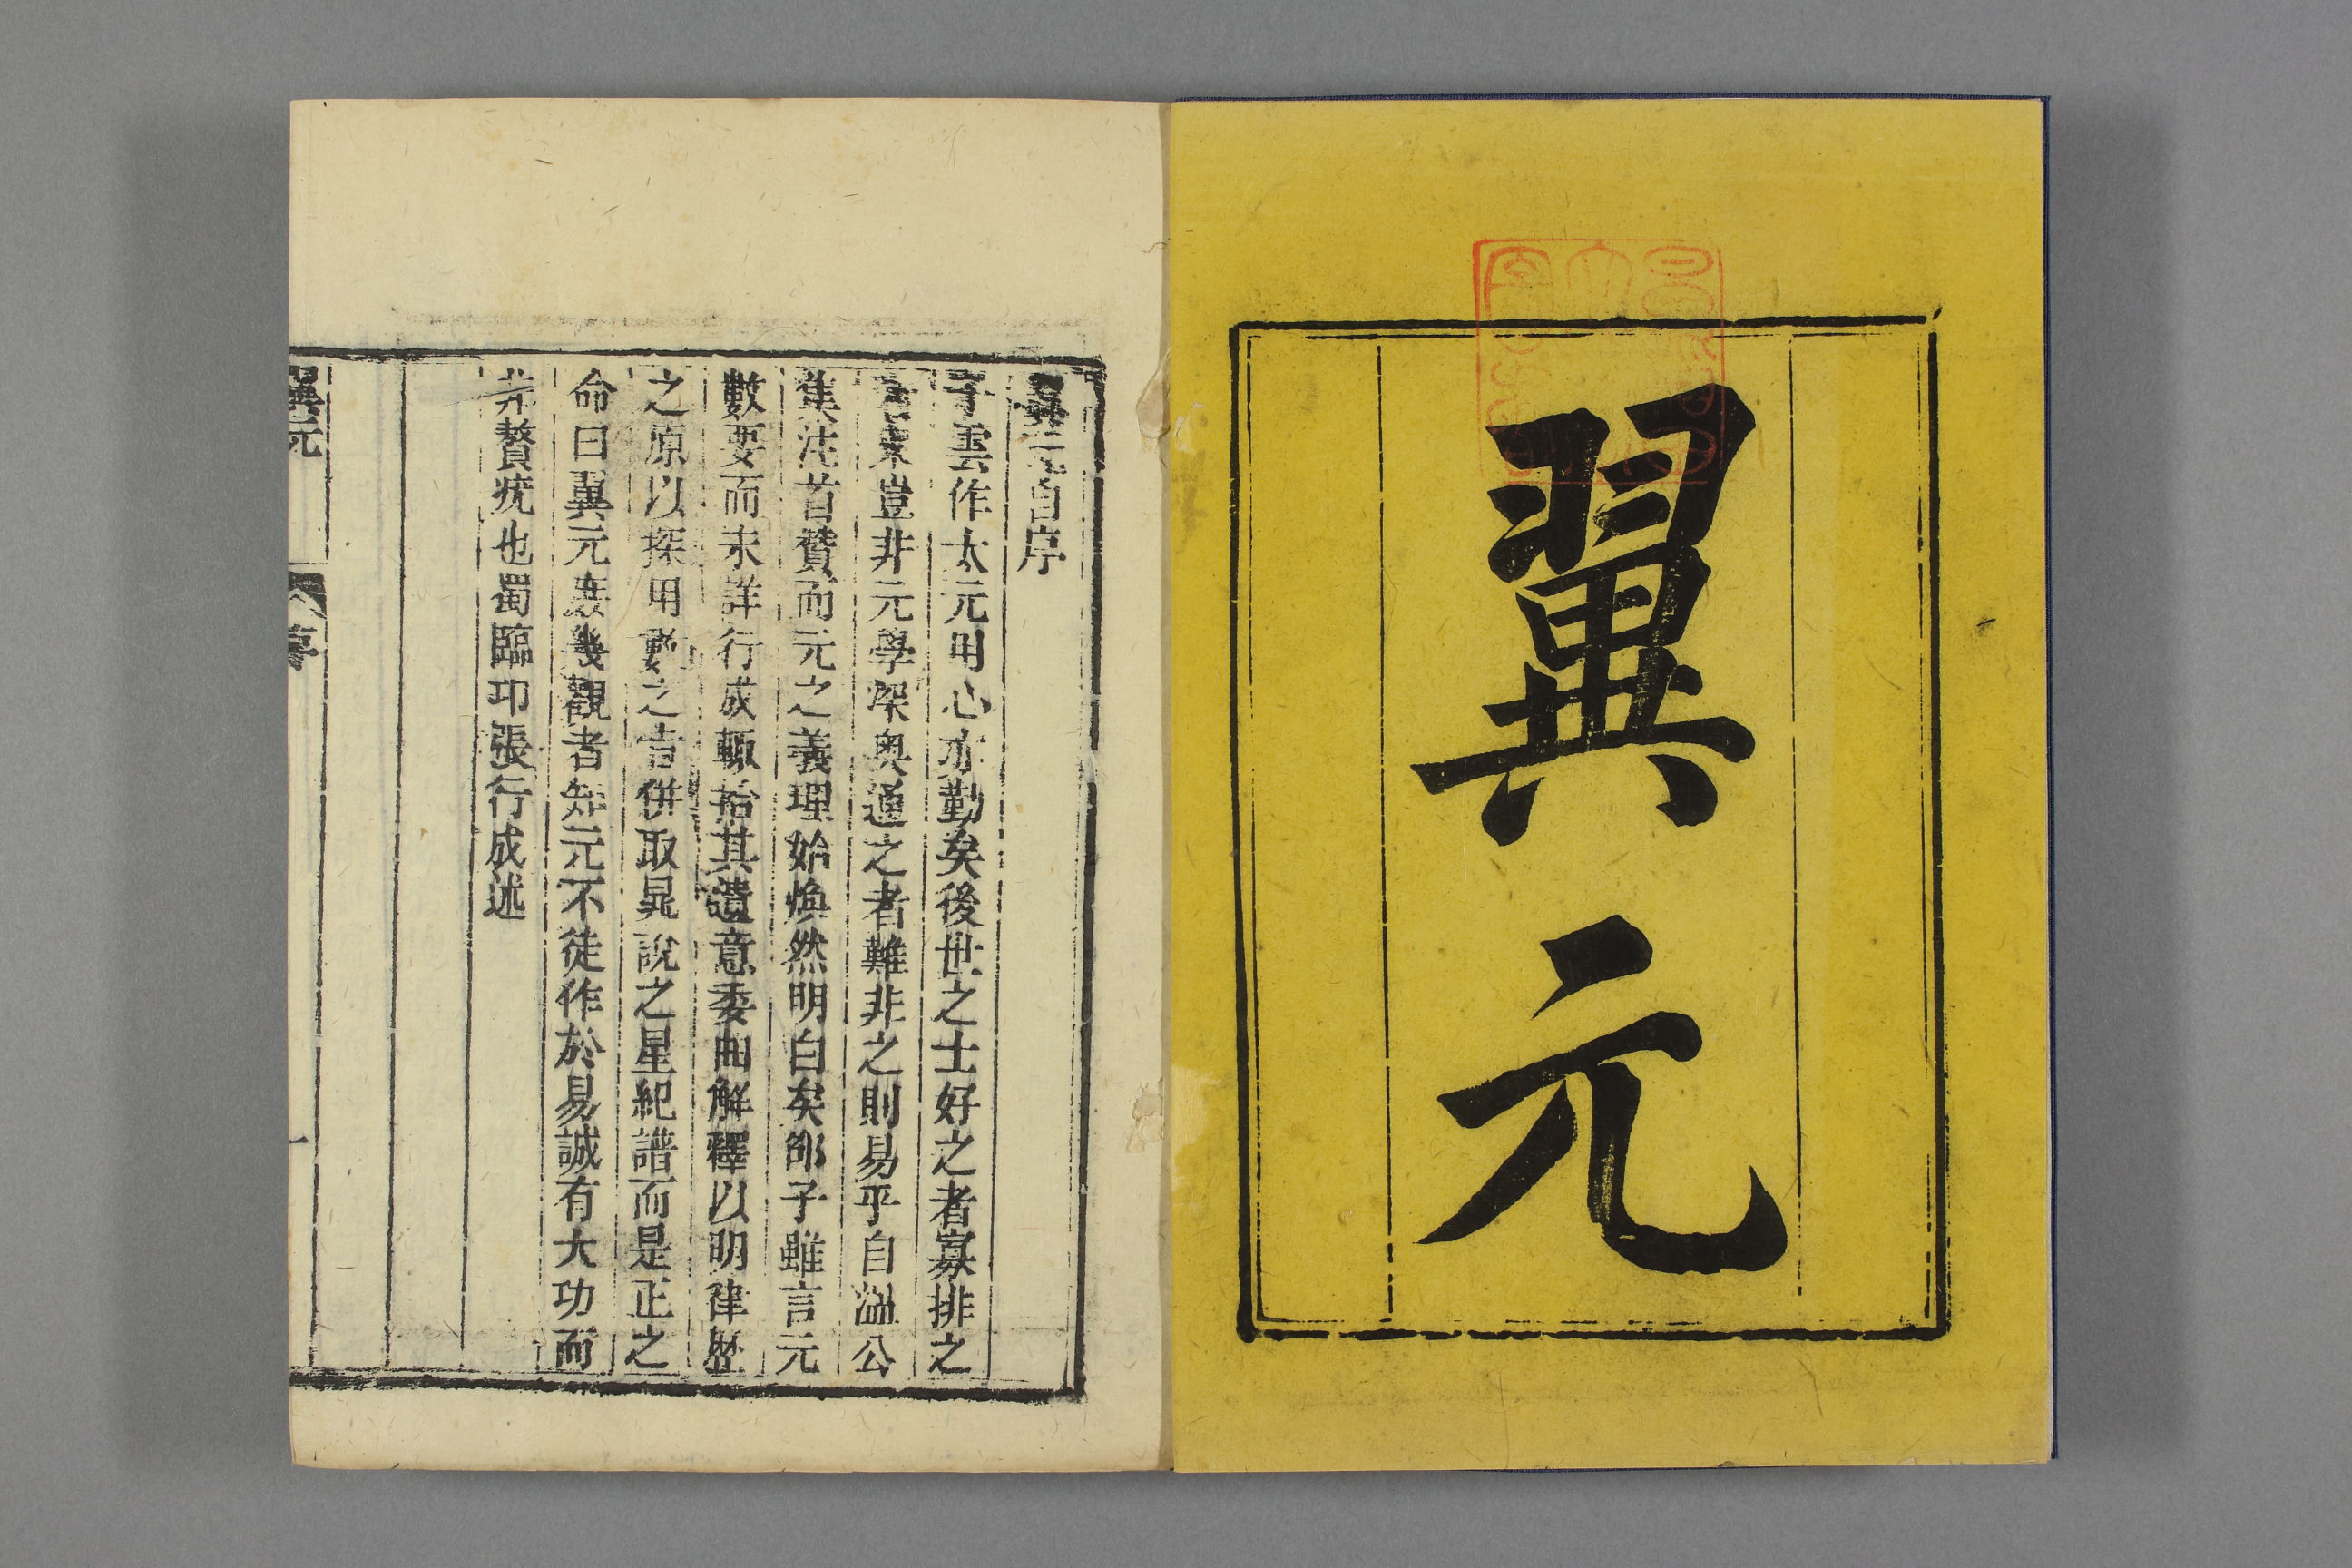 翼元
翼元自序
子雲作太元用心亦勤矣後世之士好之者寡排之
者衆豈非元學深奥通之者難非之則易乎自溫公
集注首贊而元之義理始煥然明白矣邵子雖言元
數要而未詳行成輒拾其遺意委曲解釋以明律歷
之原以探用數之旨併取晁說之星紀譜而是正之
命曰翼元庶幾觀者知元不徒作於易誠有大功而
非贅疣也蜀臨邛張行成述
翼元
序
一